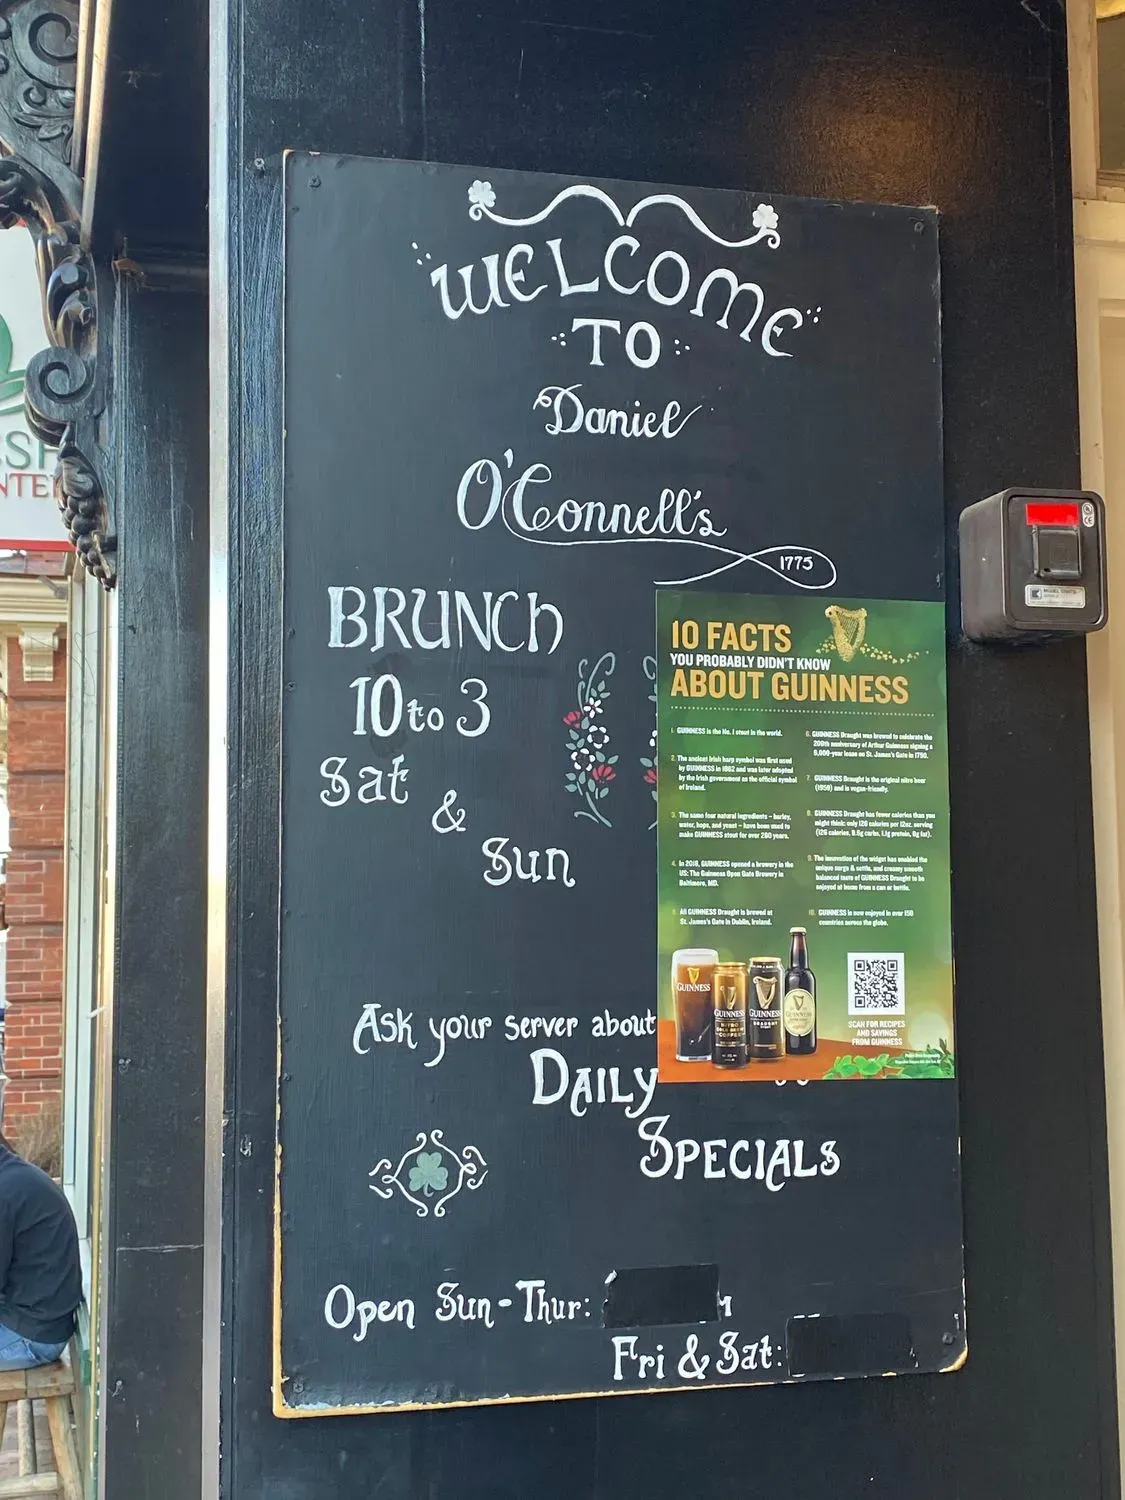 WELCOME
TO
Daniel
O'Connell's
1775
BRUNCH
10 to 3
Sat
&
Sun
Ask your server about
DAILY
SPECIALS
Open Sun-Thur:
Fri & Sat:
10 FACTS
YOU PROBABLY DIDN'T KNOW
ABOUT GUINNESS
1. GUINNESS is the No. 1 stout in the world.
2. The ancient Irish harp symbol was first used
by GUINNESS in 1862 and was later adopted
by the Irish government as the official symbol
of Ireland.
3. The same four natural ingredients – barley,
water, hops, and yeast – have been used to
make GUINNESS stout for over 260 years.
4. In 2018, GUINNESS opened a brewery in the
US: The Guinness Open Gate Brewery in
Baltimore, MD.
5. All GUINNESS Draught is brewed at
St. James's Gate in Dublin, Ireland.
6. GUINNESS Draught was brewed to celebrate the
200th anniversary of Arthur Guinness signing a
9,000-year lease on St. James's Gate in 1759.
7. GUINNESS Draught is the original nitro beer
(1959) and is vegan-friendly.
8. GUINNESS Draught has fewer calories than you
might think: only 126 calories per 12oz. serving
(126 calories, 9.9g carbs, 1.1g protein, 0g fat).
9. The innovation of the widget has enabled the
unique surge & settle, and creamy smooth
balanced taste of GUINNESS Draught to be
enjoyed at home from a can or bottle.
10. GUINNESS is now enjoyed in over 150
countries across the globe.
GUINNESS
GUINNESS
NITRO
COLD BREW
COFFEE
GUINNESS
DRAUGHT
GUINNESS
SCAN FOR RECIPES
AND SAVINGS
FROM GUINNESS